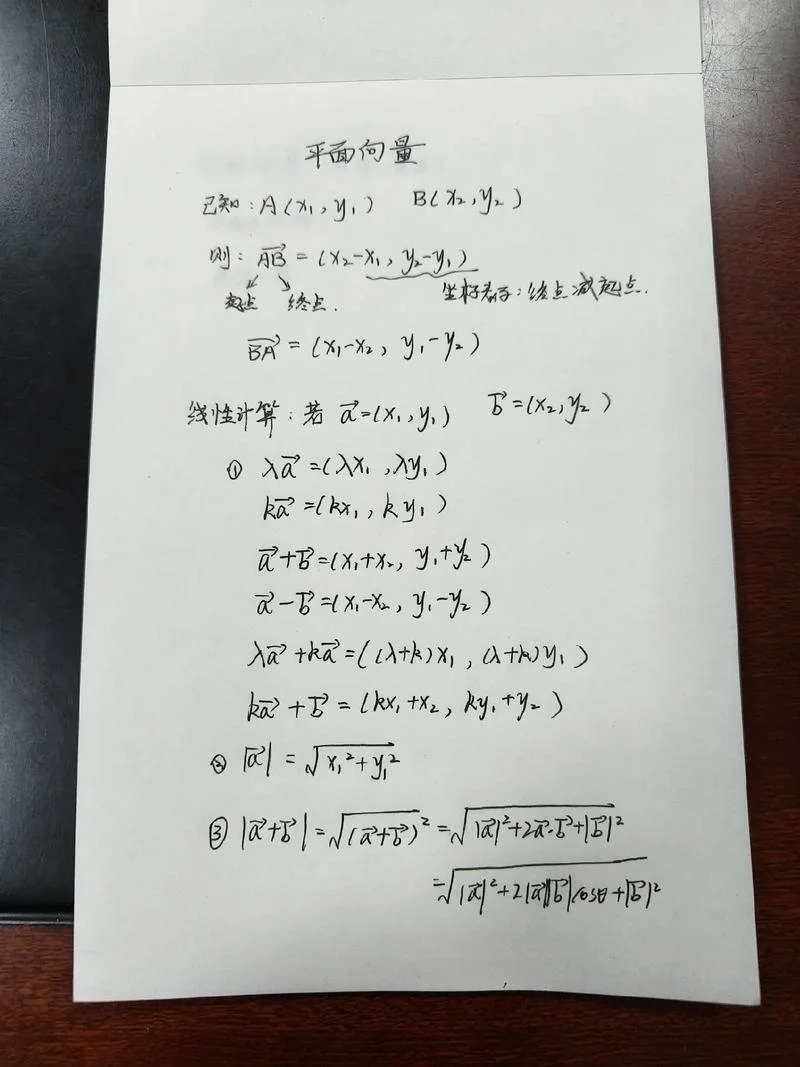 平面向量
已知: A(x₁, y₁) B(x₂, y₂)
则: \overrightarrow{AB} = (x₂-x₁, y₂-y₁)
起点 终点. 坐标表示: 终点减起点.
\overrightarrow{BA} = (x₁-x₂, y₁-y₂)
线性计算: 若 \vec{a}=(x₁, y₁) \vec{b}=(x₂, y₂)
① λ\vec{a} = (λx₁, λy₁)
k\vec{a} = (kx₁, ky₁)
\vec{a}+\vec{b} = (x₁+x₂, y₁+y₂)
\vec{a}-\vec{b} = (x₁-x₂, y₁-y₂)
λ\vec{a}+k\vec{a} = ((λ+k)x₁, (λ+k)y₁)
k\vec{a}+\vec{b} = (kx₁+x₂, ky₁+y₂)
② |\vec{a}| = \sqrt{x₁²+y₁²}
③ |\vec{a}+\vec{b}| = \sqrt{(\vec{a}+\vec{b})²} = \sqrt{|\vec{a}|²+2\vec{a}·\vec{b}+|\vec{b}|²}
= \sqrt{|\vec{a}|²+2|\vec{a}||\vec{b}|cosθ+|\vec{b}|²}